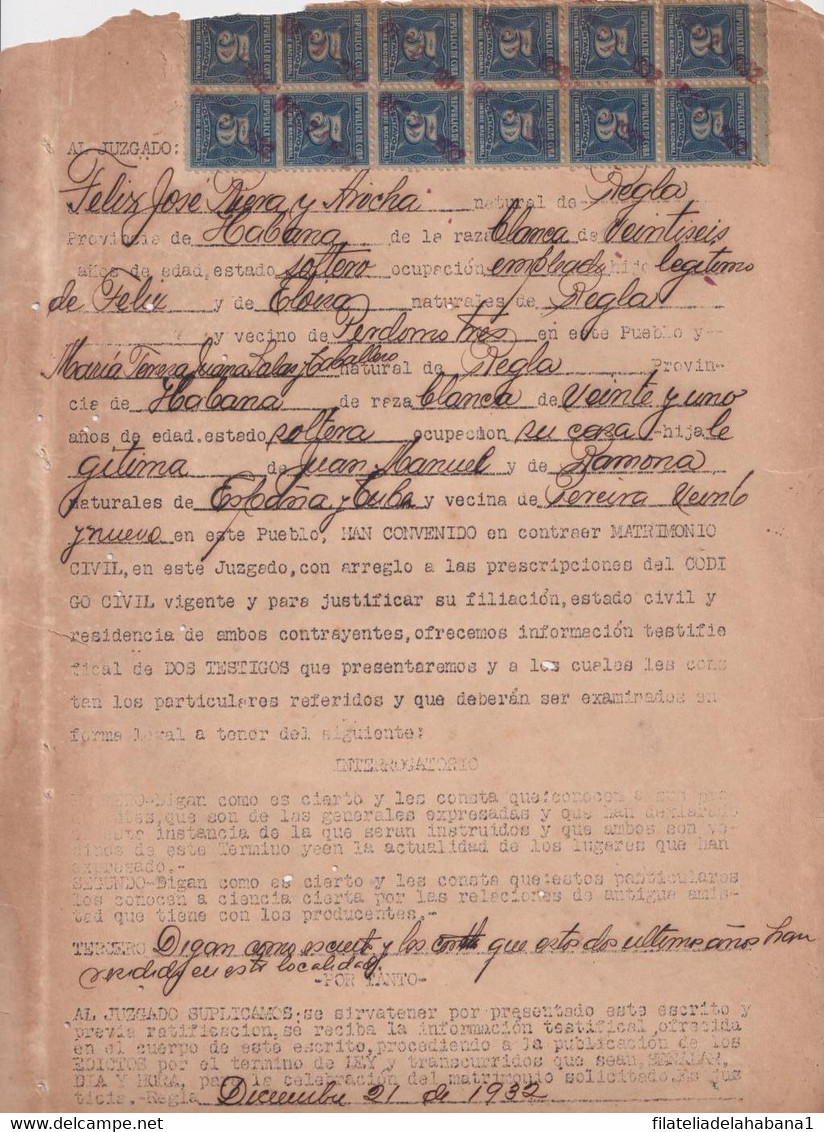 REPUBLICA DE CUBA
AL JUZGADO:
Feliz José Riera y Arocha natural de Regla
Provincia de Habana de la raza blanca de veintiseis
años de edad, estado soltero ocupación empleado hijo legitimo
de Feliz y de Eloisa naturales de Regla
y vecino de Perdomo tres en este Pueblo y--
María Teresa Juana Salas y Caballero natural de Regla Provin-
cia de Habana de raza blanca de veinte y uno
años de edad. estado soltera ocupacion su casa -hija le
gitima de Juan Manuel y de Ramona
naturales de España y Cuba y vecina de Pereira Veinti
y nueve en este Pueblo, HAN CONVENIDO en contraer MATRIMONIO
CIVIL, en este Juzgado, con arreglo a las prescripciones del CODI
GO CIVIL vigente y para justificar su filiación, estado civil y
residencia de ambos contrayentes, ofrecemos información testifie
fical de DOS TESTIGOS que presentaremos y a los cuales les cons
tan los particulares referidos y que deberán ser examinados en
forma legal a tenor del siguiente:
INTERROGATORIO
-Digan como es cierto y les consta que: conocen
que son de las generales expresadas y que han declarado
instancia de la que seran instruidos y que ambos son ve-
cinos de este Termino yeen la actualidad de los lugares que han
expresado.-
SEGUNDO-Digan como es cierto y les consta que: estos particulares
los conocen a ciencia cierta por las relaciones de antigua amis-
tad que tiene con los producentes.-
TERCERO Digan como es cierto y les que estos dos ultimos años han
residido en esta localidad.
-POR TANTO-
AL JUZGADO SUPLICAMOS: se sirvatener por presentado este escrito y
previa ratificacion, se reciba la información testifical, ofrecida
en el cuerpo de este escrito, procediendo a la publicación de los
EDICTOS por el termino de LEY y transcurridos que sean, SEÑALAR,
DIA Y HORA, para la celebración del matrimonio solicitado. Es jus
ticia.-Regla Diciembre 21 de 1932
filateliadelahabana1.com